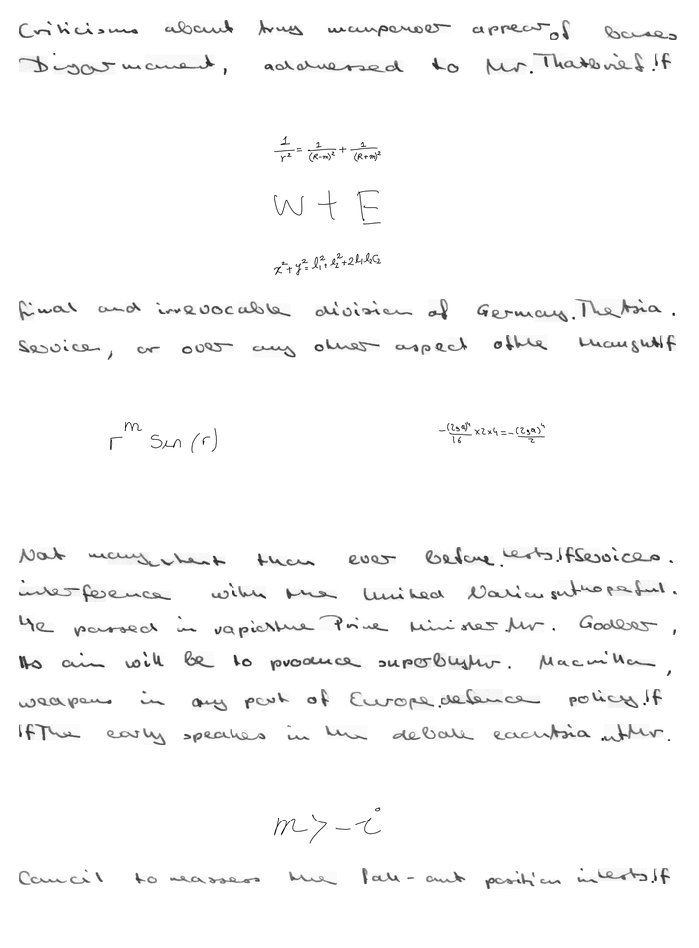 Criticisms about army manpower appear of bases
Disarmament, addressed to Mr. That brief. If
\frac{1}{r^2} = \frac{1}{(R-m)^2} + \frac{1}{(R+m)^2}
W + E
x^2 + y^2 = l_1^2 + l_2^2 + 2 l_1 l_2 c_2
final and irrevocable division of Germany. The Asia.
Service, or over any other aspect of the thought If
r^m Sin (r)
-\frac{(2sa)^4}{16} \times 2 \times 4 = -\frac{(2sa)^4}{2}
Not many than ever before. tests. If Services.
interference with the United Nations hopeful.
He passed in the Prime Minister. Mr. Godber,
Its aim will be to produce superbly Mr. Macmillan,
weapons in any part of Europe. defence policy. If
If The early speakes in the debate Mr.
m > -i
Council to reassess the position in tests. If